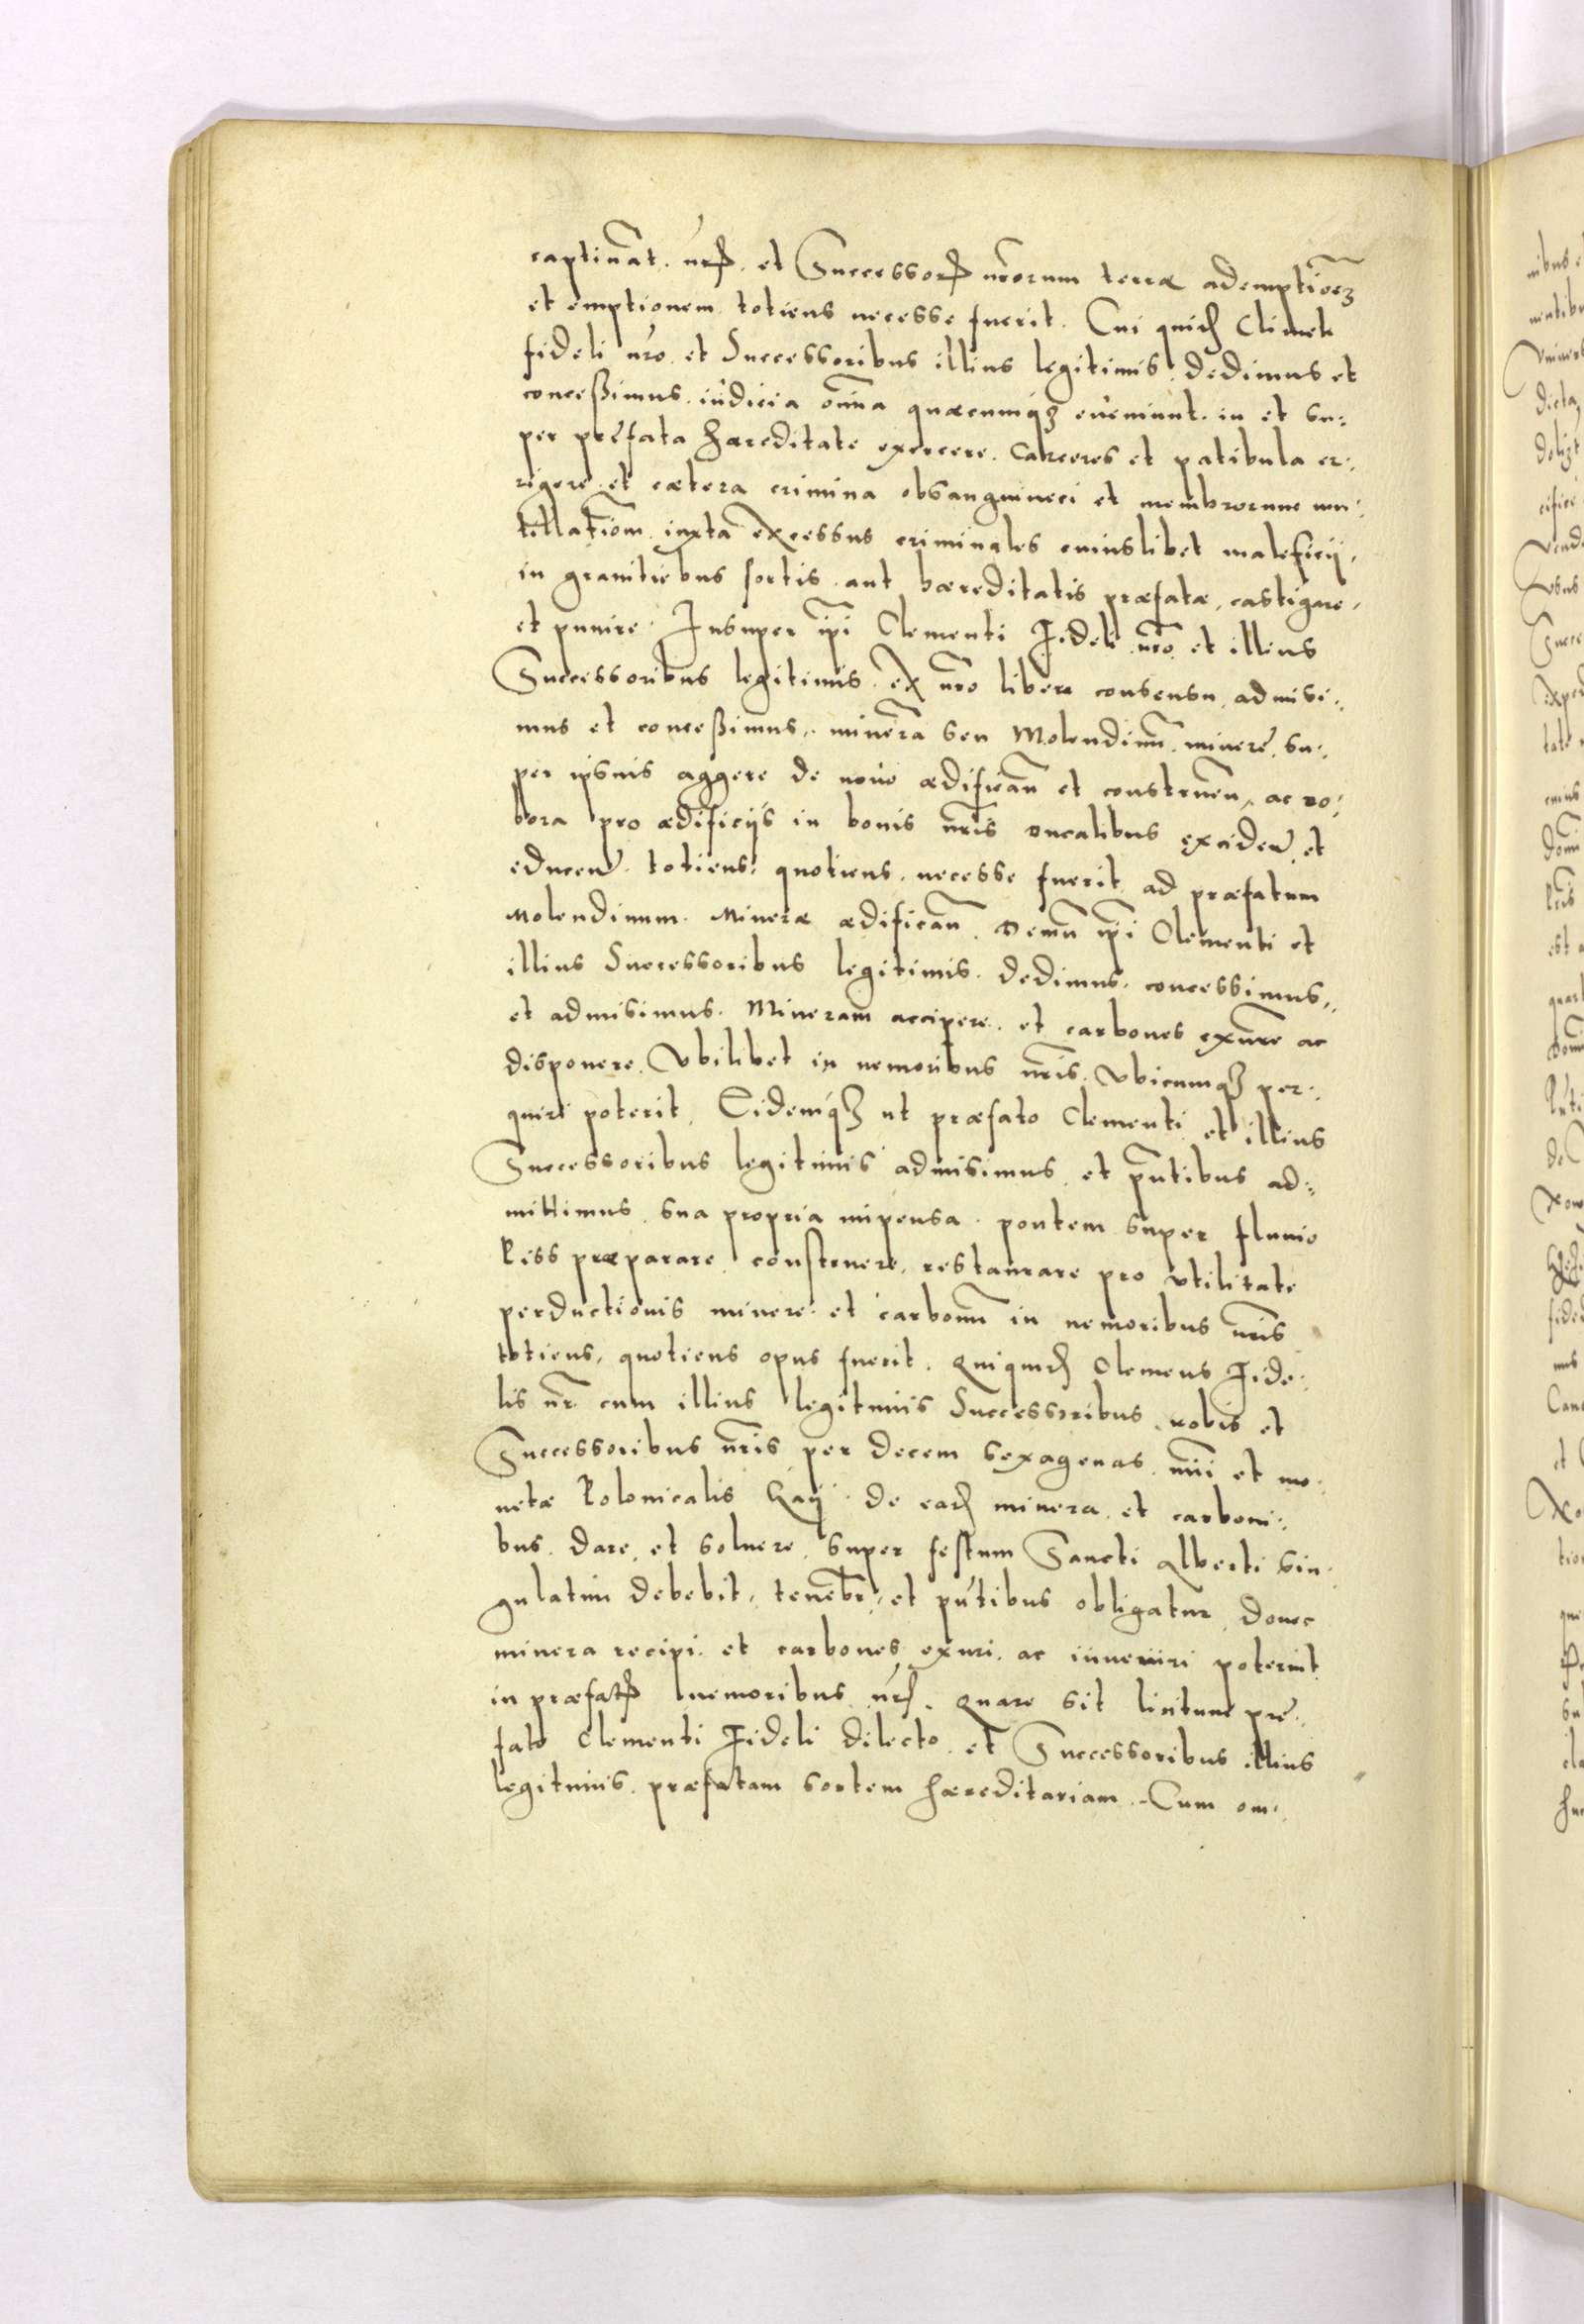 captiuāt. nr̄orꝝ et Successorꝝ nr̄orum terræ ademptiōeꝫ
et emptionem totiens necesse fuerit. Cui quidē Climek
fideli nr̄o et Successoribus illius legitimis, dedimus et
conceßimus. iudicia ōmnia quæcumqꝫ eueniunt. in et su-
per prefata hæreditate exercere. Carceres et patibula er-
rigere et cætera crimina obsanguineci et membrorum mu-
tillatiōm iuxta excessus criminales cuiuslibet maleficij.
in granitiebus sortis aut hæreditatis præfatæ, castigare,
et punire. Insuper ip̄i Clementi Fideli nr̄o et illius
Successoribus legitimis. ex nr̄o libere consensu, admisi-
mus et conceßimus, minera seu Molendinū minere, su-
per ipsius aggere de nouo ædificān et construēn, ac ro-
bora pro ædificijs in bonis nr̄is ducalibus exciden̄ et
educen̄. totiens, quotiens, necesse fuerit ad præfatum
Molendinum Mineræ ædificān. Demū ip̄i Clementi et
illius Successoribus legitimis. dedimus, concessimus,
et admisimus. Mineram accipere. et carbones exurere ac
disponere. Vbilibet in nemoribus nr̄is. Vbicumqꝫ per-
quiri poterit. Eidemqꝫ ut præfato Clementi et illius
Successoribus legitimis admisimus, et pn̄tibus ad-
mittimus, sua propria impensa. pontem super fluuio
Liss præparare, construere, restaurare pro vtilitate
perductionis minere. et carbonū in nemoribus nr̄is
totiens, quotiens opus fuerit. Quiquidē Clemens Fide-
lis nr̄. cum illius legitimis Successoribus, nobis et
Successoribus nr̄is per decem sexagenas. nū̄i et mo-
netæ Polonicalis de eadē minera, et carboni-
bus. dare et soluere, super festum Sancti Alberti sin-
gulatim debebit, tenebr̄, et pn̄tibus obligatur, donec
minera recipi. et carbones exuri. ac inueniri poterint
in præfatꝭ nemoribus nr̄is. Quare sit licitum pre-
fato Clementi Fideli dilecto et Successoribus illius
legitimis. præfatam sortem hæreditariam. Cum om-